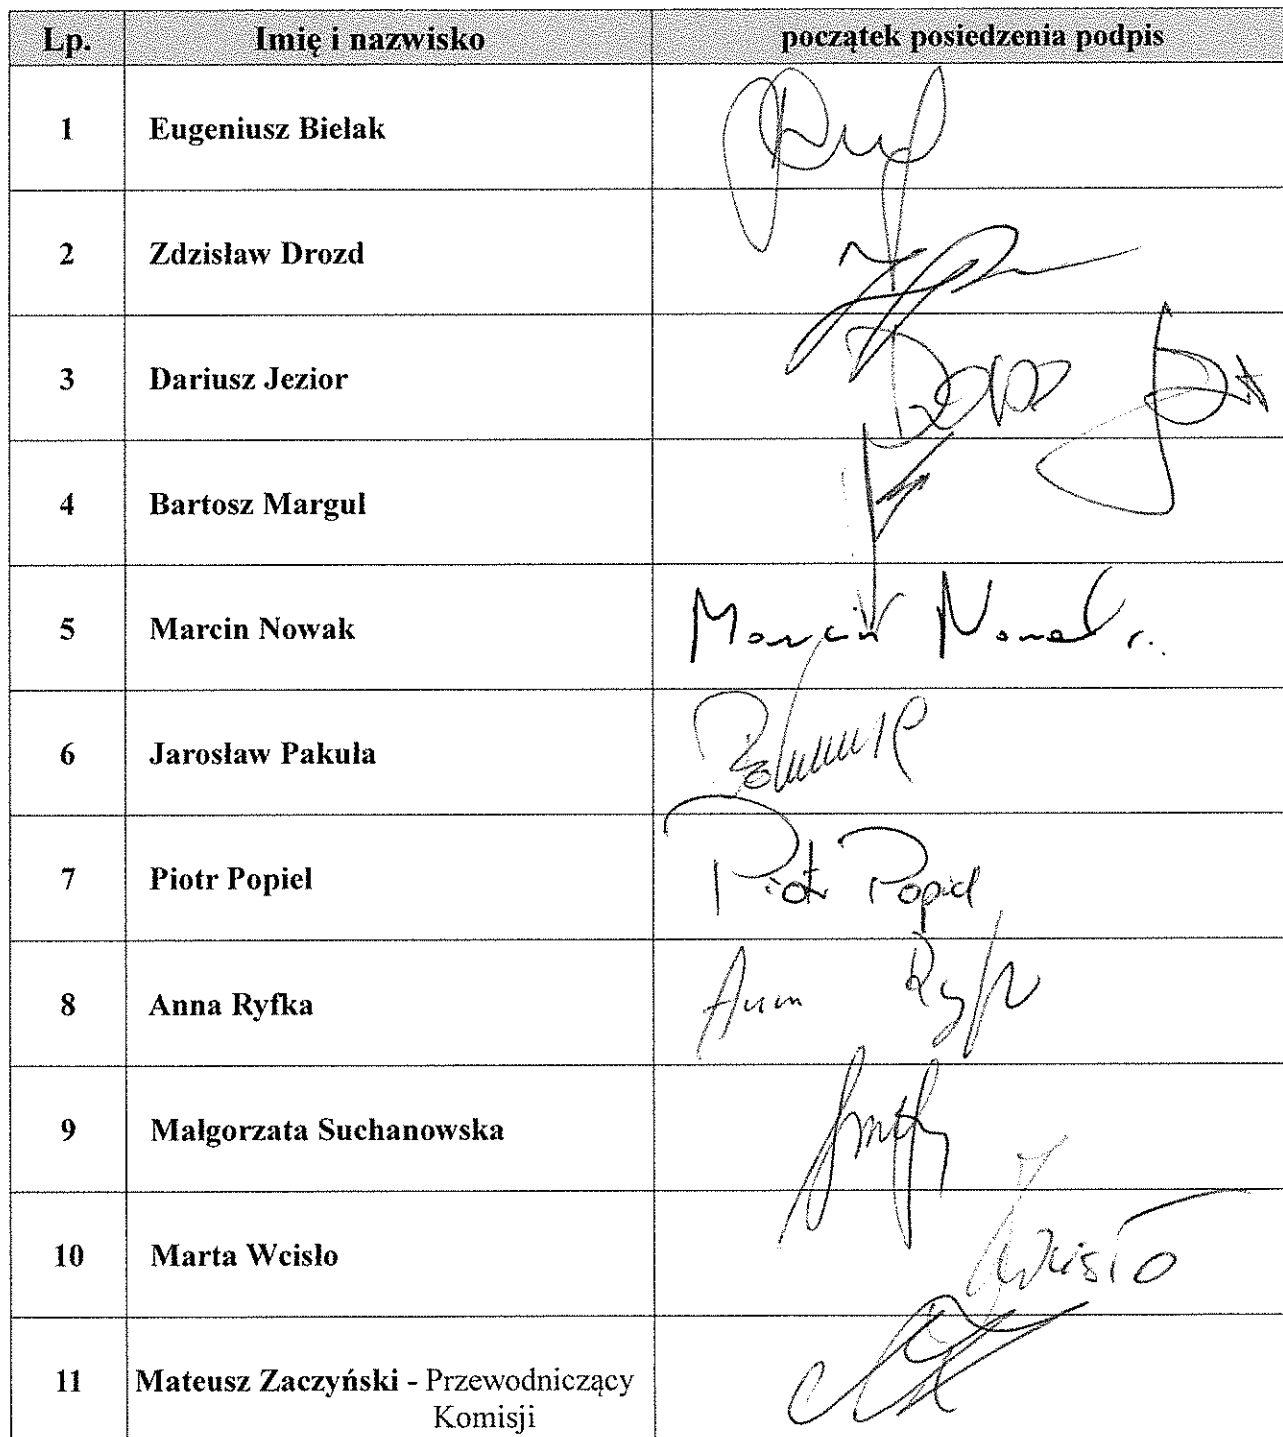 Lp. Imię i nazwisko początek posiedzenia podpis
1 Eugeniusz Bielak
2 Zdzisław Drozd
3 Dariusz Jezior
4 Bartosz Margul
5 Marcin Nowak Marcin Nowak
6 Jarosław Pakuła
7 Piotr Popiel Piotr Popiel
8 Anna Ryfka Anna
9 Małgorzata Suchanowska
10 Marta Wcisło Wcisło
11 Mateusz Zaczyński - Przewodniczący
Komisji